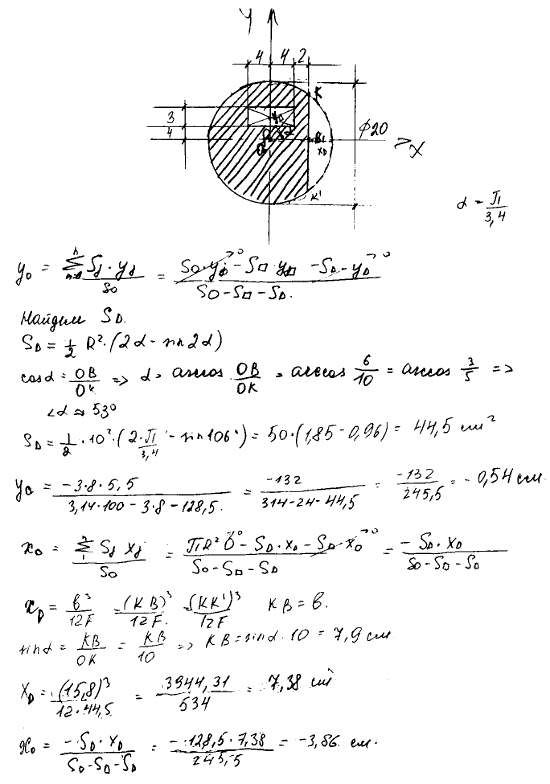 Y
4 4 2
K
3
4
y□
Ф20
X
K'
α = П/3,4
y₀ = Σ Sj · yj / S₀ = (S○ · y○→0 - S□ · y□ - S_D · y_D→0) / (S○ - S□ - S_D)
Найдем S_D.
S_D = 1/2 R² · (2α - sin 2α)
cos α = OB/OK => α = arccos OB/OK = arccos 6/10 = arccos 3/5 =>
∠α ≈ 53°
S_D = 1/2 · 10² · (2 · П/3,4 - sin 106°) = 50 · (1,85 - 0,96) = 44,5 см²
y₀ = -3·8·5,5 / (3,14·100 - 3·8 - 128,5) = -132 / (314-24-44,5) = -132/245,5 = -0,54 см.
x₀ = Σ Sj xj / S₀ = (ПR² · 0→0 - S_D · x_D - S□ · x□→0) / (S○ - S□ - S_D) = -S_D · x_D / (S○ - S□ - S_D)
x_D = b³/12F = (KB)³/12F = (KK')³/12F KB = b.
sin α = KB/OK = KB/10 => KB = sin α · 10 = 7,9 см.
X_D = (15,8)³ / (12·44,5) = 3944,31/534 = 7,38 см
x₀ = -S_D · x_D / (S○ - S□ - S_D) = -128,5·7,38 / 245,5 = -3,86 см.